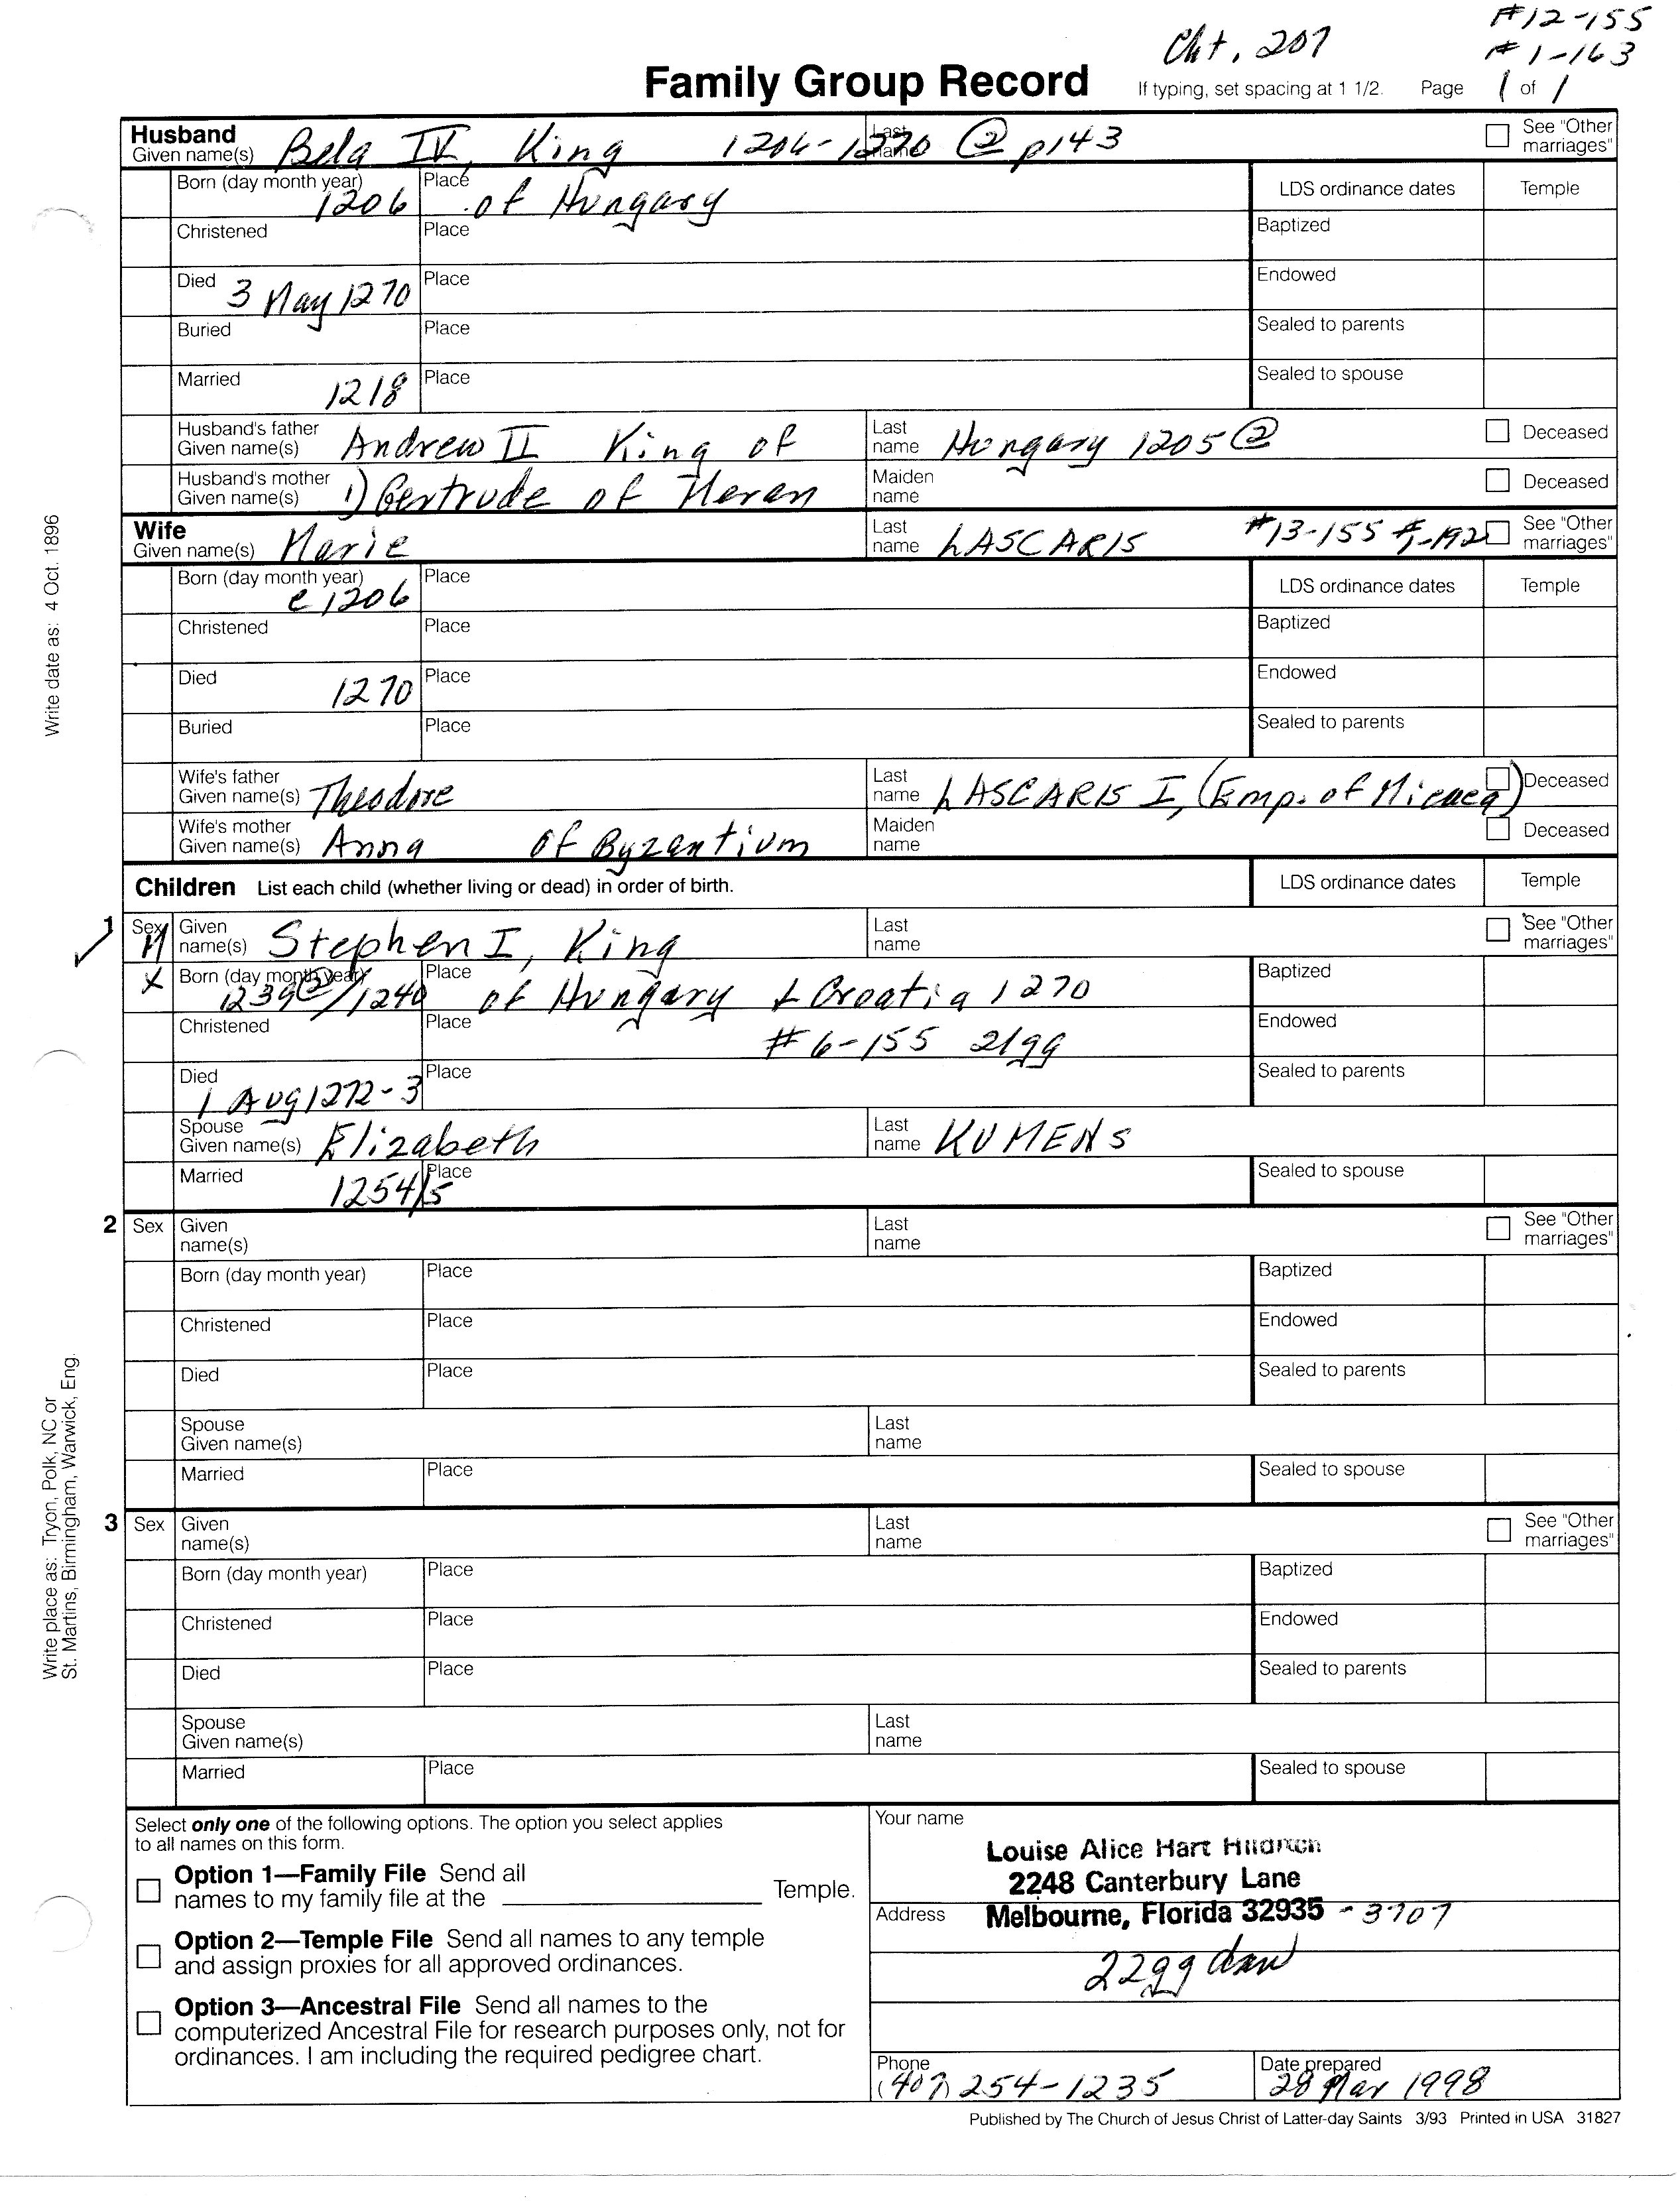 #12-155
Cht. 207 #1-163
Family Group Record If typing, set spacing at 1 1/2. Page 1 of 1
Husband
Given name(s) Bela IV, King 1206-1270 @ p143 Last name See "Other marriages"
Born (day month year) 1206 Place of Hungary LDS ordinance dates Temple
Christened Place Baptized
Died 3 May 1270 Place Endowed
Buried Place Sealed to parents
Married 1218 Place Sealed to spouse
Husband's father Given name(s) Andrew II King of Last name Hungary 1205 @ Deceased
Husband's mother Given name(s) 1) Gertrude of Meran Maiden name Deceased
Wife
Given name(s) Marie Last name LASCARIS #13-155 See "Other marriages"
Born (day month year) c 1206 Place LDS ordinance dates Temple
Christened Place Baptized
Died 1270 Place Endowed
Buried Place Sealed to parents
Wife's father Given name(s) Theodore Last name LASCARIS I, (Emp. of Nicaea) Deceased
Wife's mother Given name(s) Anna of Byzantium Maiden name Deceased
Children List each child (whether living or dead) in order of birth. LDS ordinance dates Temple
1 Sex M Given name(s) Stephen I, King Last name See "Other marriages"
X Born (day month year) 1239@/1240 Place of Hungary + Croatia 1270 Baptized
Christened Place #6-155 21gg Endowed
Died 1 Aug 1272-3 Place Sealed to parents
Spouse Given name(s) Elizabeth Last name KUMENS
Married 1254/5 Place Sealed to spouse
2 Sex Given name(s) Last name See "Other marriages"
Born (day month year) Place Baptized
Christened Place Endowed
Died Place Sealed to parents
Spouse Given name(s) Last name
Married Place Sealed to spouse
3 Sex Given name(s) Last name See "Other marriages"
Born (day month year) Place Baptized
Christened Place Endowed
Died Place Sealed to parents
Spouse Given name(s) Last name
Married Place Sealed to spouse
Write date as: 4 Oct. 1896
Write place as: Tryon, Polk, NC or
St. Martins, Birmingham, Warwick, Eng.
Select only one of the following options. The option you select applies
to all names on this form.
Option 1—Family File Send all
names to my family file at the Temple.
Option 2—Temple File Send all names to any temple
and assign proxies for all approved ordinances.
Option 3—Ancestral File Send all names to the
computerized Ancestral File for research purposes only, not for
ordinances. I am including the required pedigree chart.
Your name
Louise Alice Hart
2248 Canterbury Lane
Address Melbourne, Florida 32935 - 3707
22gg dau
Phone (407) 254-1235 Date prepared 28 Mar 1998
Published by The Church of Jesus Christ of Latter-day Saints 3/93 Printed in USA 31827